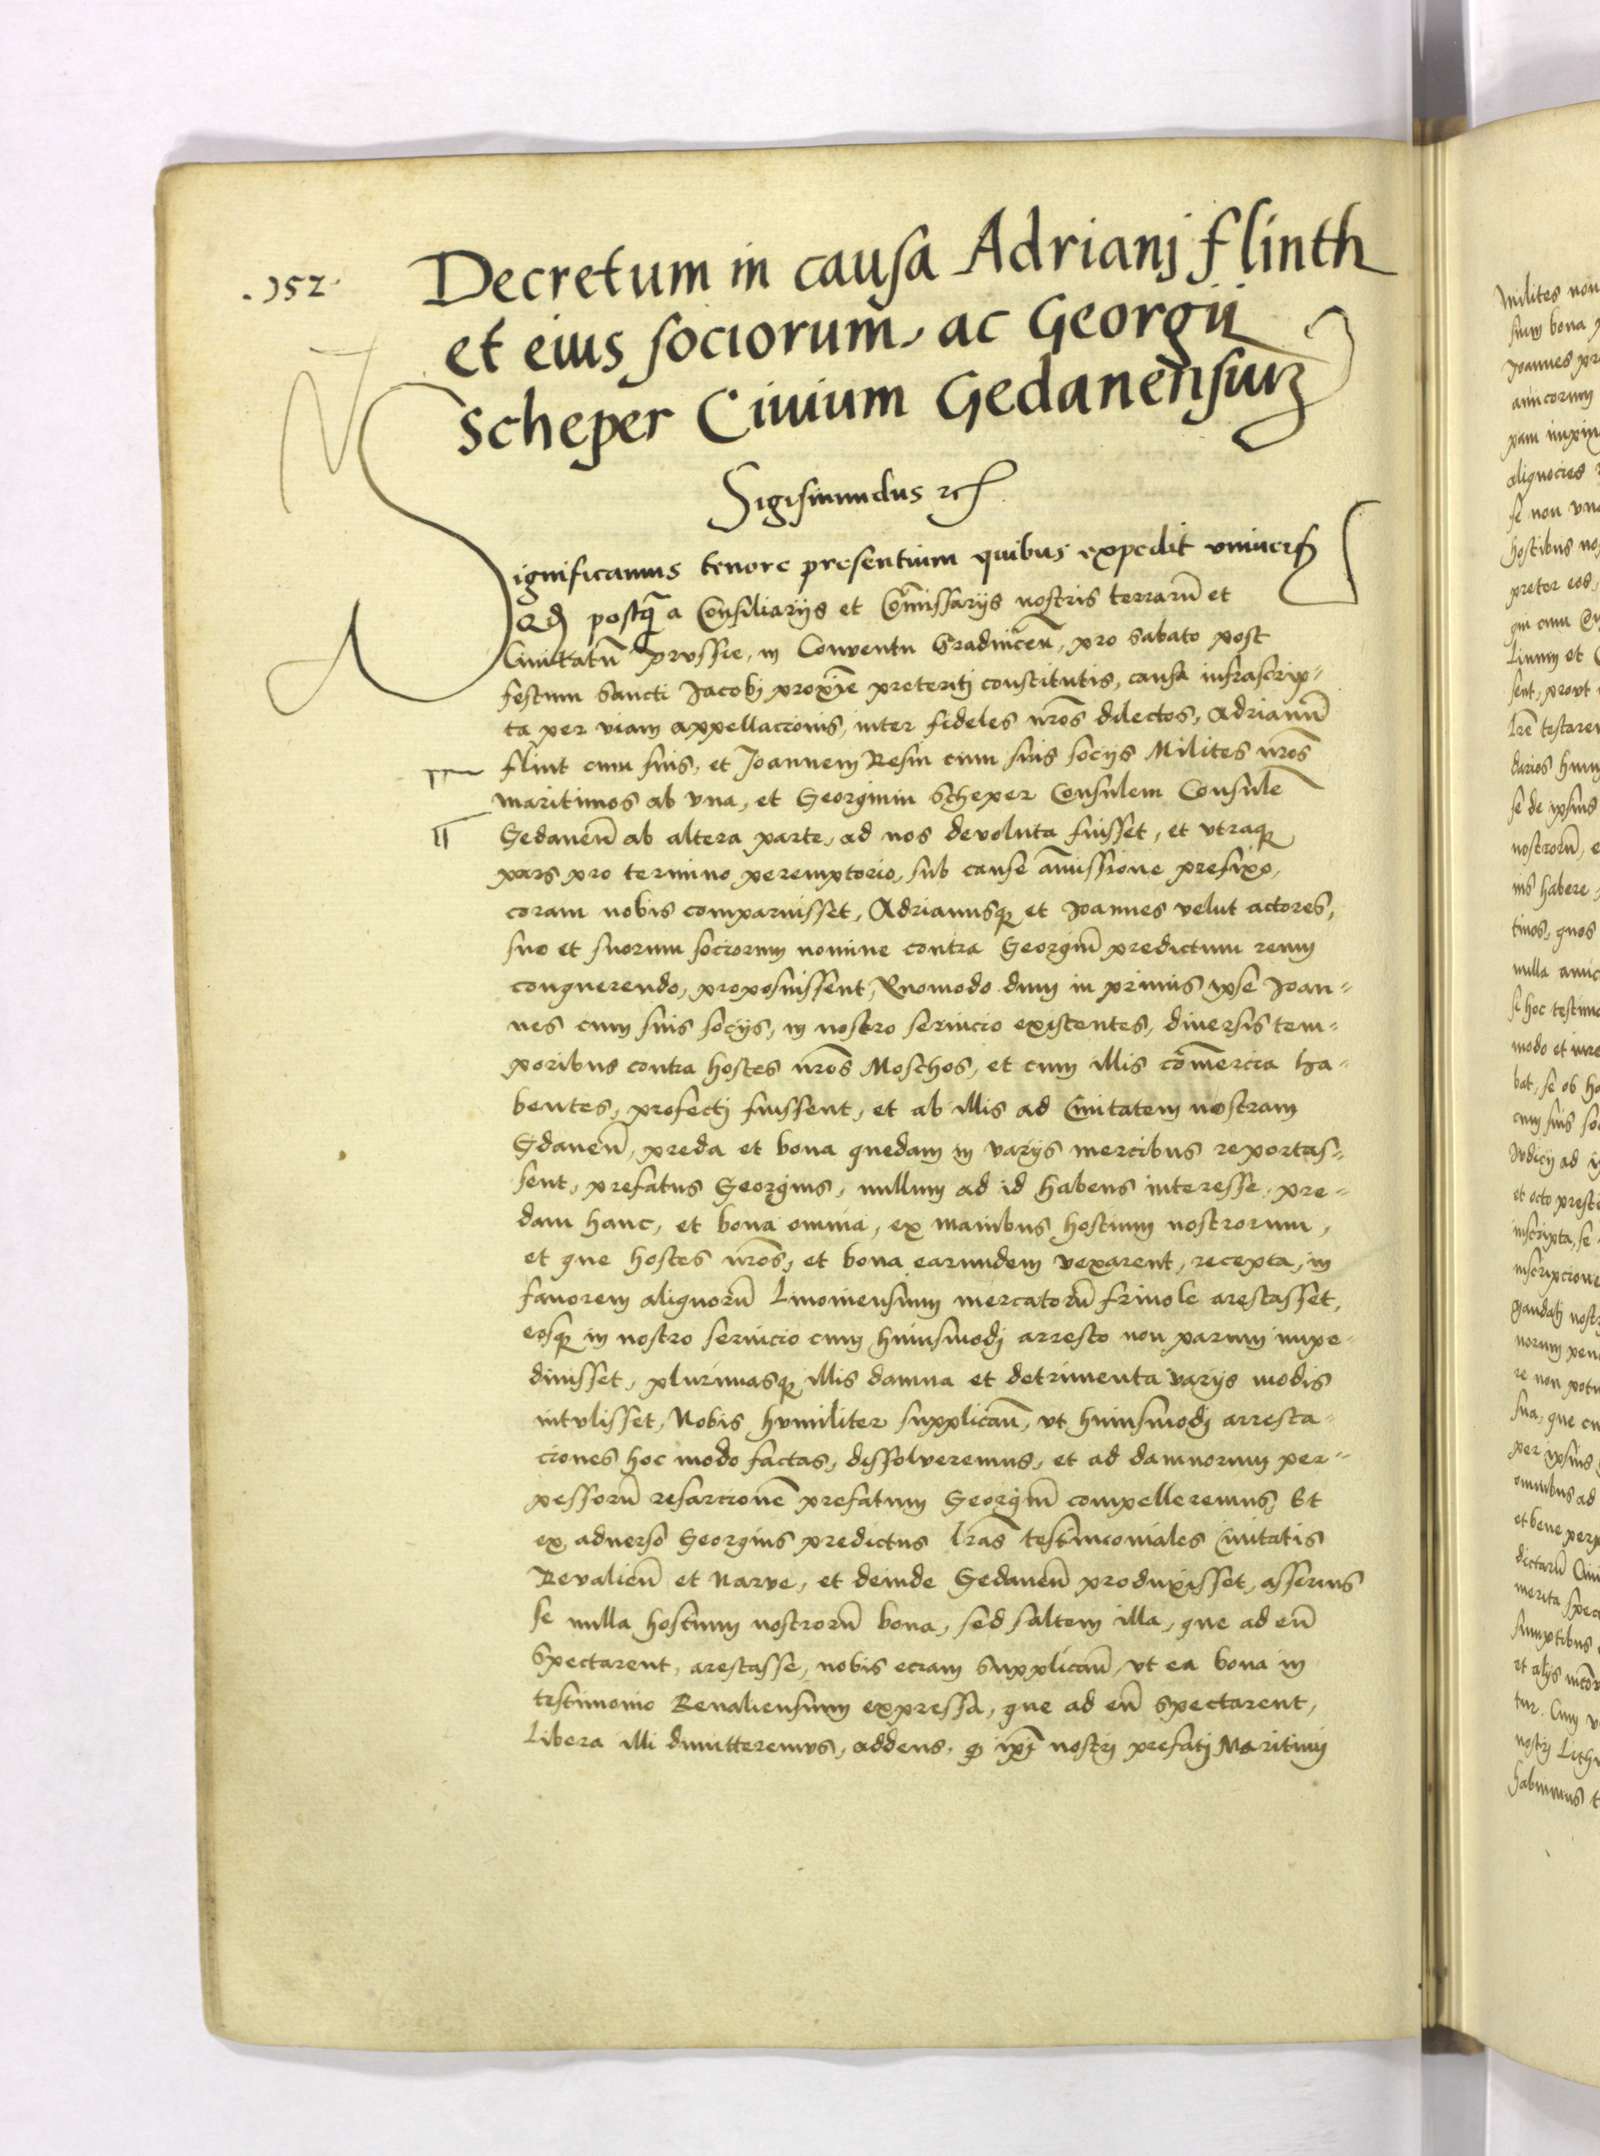 .152.
Decretum in causa Adrianj flinth
et eius sociorum, ac Georgii
Scheper Ciuium Gedanensiuꝫ
Sigismundus ꝛc
Significamus tenore presentium quibus expedit vniuersis
Qđ postꝗ̃ a Consiliarijs et Cõmissarijs nostris terrarũ et
Ciuitatũ prussie, in Conuentu Gradnicen̄, pro sabato post
festum Sancti Jacobj proxĩe preteritj constitutis, causa infrascrip-
ta per viam appellacionis, inter fideles nr̃os dilectos, Adrianũ
flint cum suis, et Joannem Resin cum suis socijs Milites nr̃os
maritimos ab vna, et Georgium Scheper Consulem Consulẽ
Gedanen̄ ab altera parte, ad nos deuoluta fuisset, et vtraqꝫ
pars pro termino peremptorio, sub cause amissione prefixo,
coram nobis comparuisset, Adrianusqꝫ et Joannes velut actores,
suo et suorum sociorum nomine contra Georgiũ predictum reum
conquerendo, proposuissent, Quomodo dum in primis ipse Joan-
nes cum suis socijs, in nostro seruicio existentes, diuersis tem-
poribus contra hostes nr̃os Moschos, et cum illis cõmercia ha-
bentes, profectj fuissent, et ab illis ad Ciuitatem nostram
Gdanen̄, preda et bona quedam in varijs mercibus reportas-
sent, prefatus Georgius, nullum ad id habens interesse, pre-
dam hanc, et bona omnia, ex manibus hostium nostrorum,
et que hostes nr̃os, et bona earumdem vexarent, recepta, in
fauorem aliquorũ Liuoniensium mercatorũ friuole arestasset,
eosqꝫ in nostro seruicio cum huiusmodj arresto non parum impe-
diuisset, plurimasqꝫ illis damna et detrimenta varijs modis
intulisset, Nobis humiliter supplicañ, vt huiusmodj arresta-
ciones hoc modo factas, dissolueremus, et ad damnorum per-
pessorũ resarcionẽ prefatum Georgiũ compelleremus, Et
ex aduerso Georgius predictus lr̃as testimoniales Ciuitatis
Reualien̄ et Narue, et deinde Gedanen̄ produxisset, asserens
se nulla hostium nostrorũ bona, sed saltem illa, que ad eũ
Spectarent, arestasse, nobis eciam Supplicañ, vt ea bona in
testimonio Reualiensium expressa, que ad eũ Spectarent,
Libera illi dimitteremus, addens, ꝙ ip̃i nostrj prefatj Maritimj